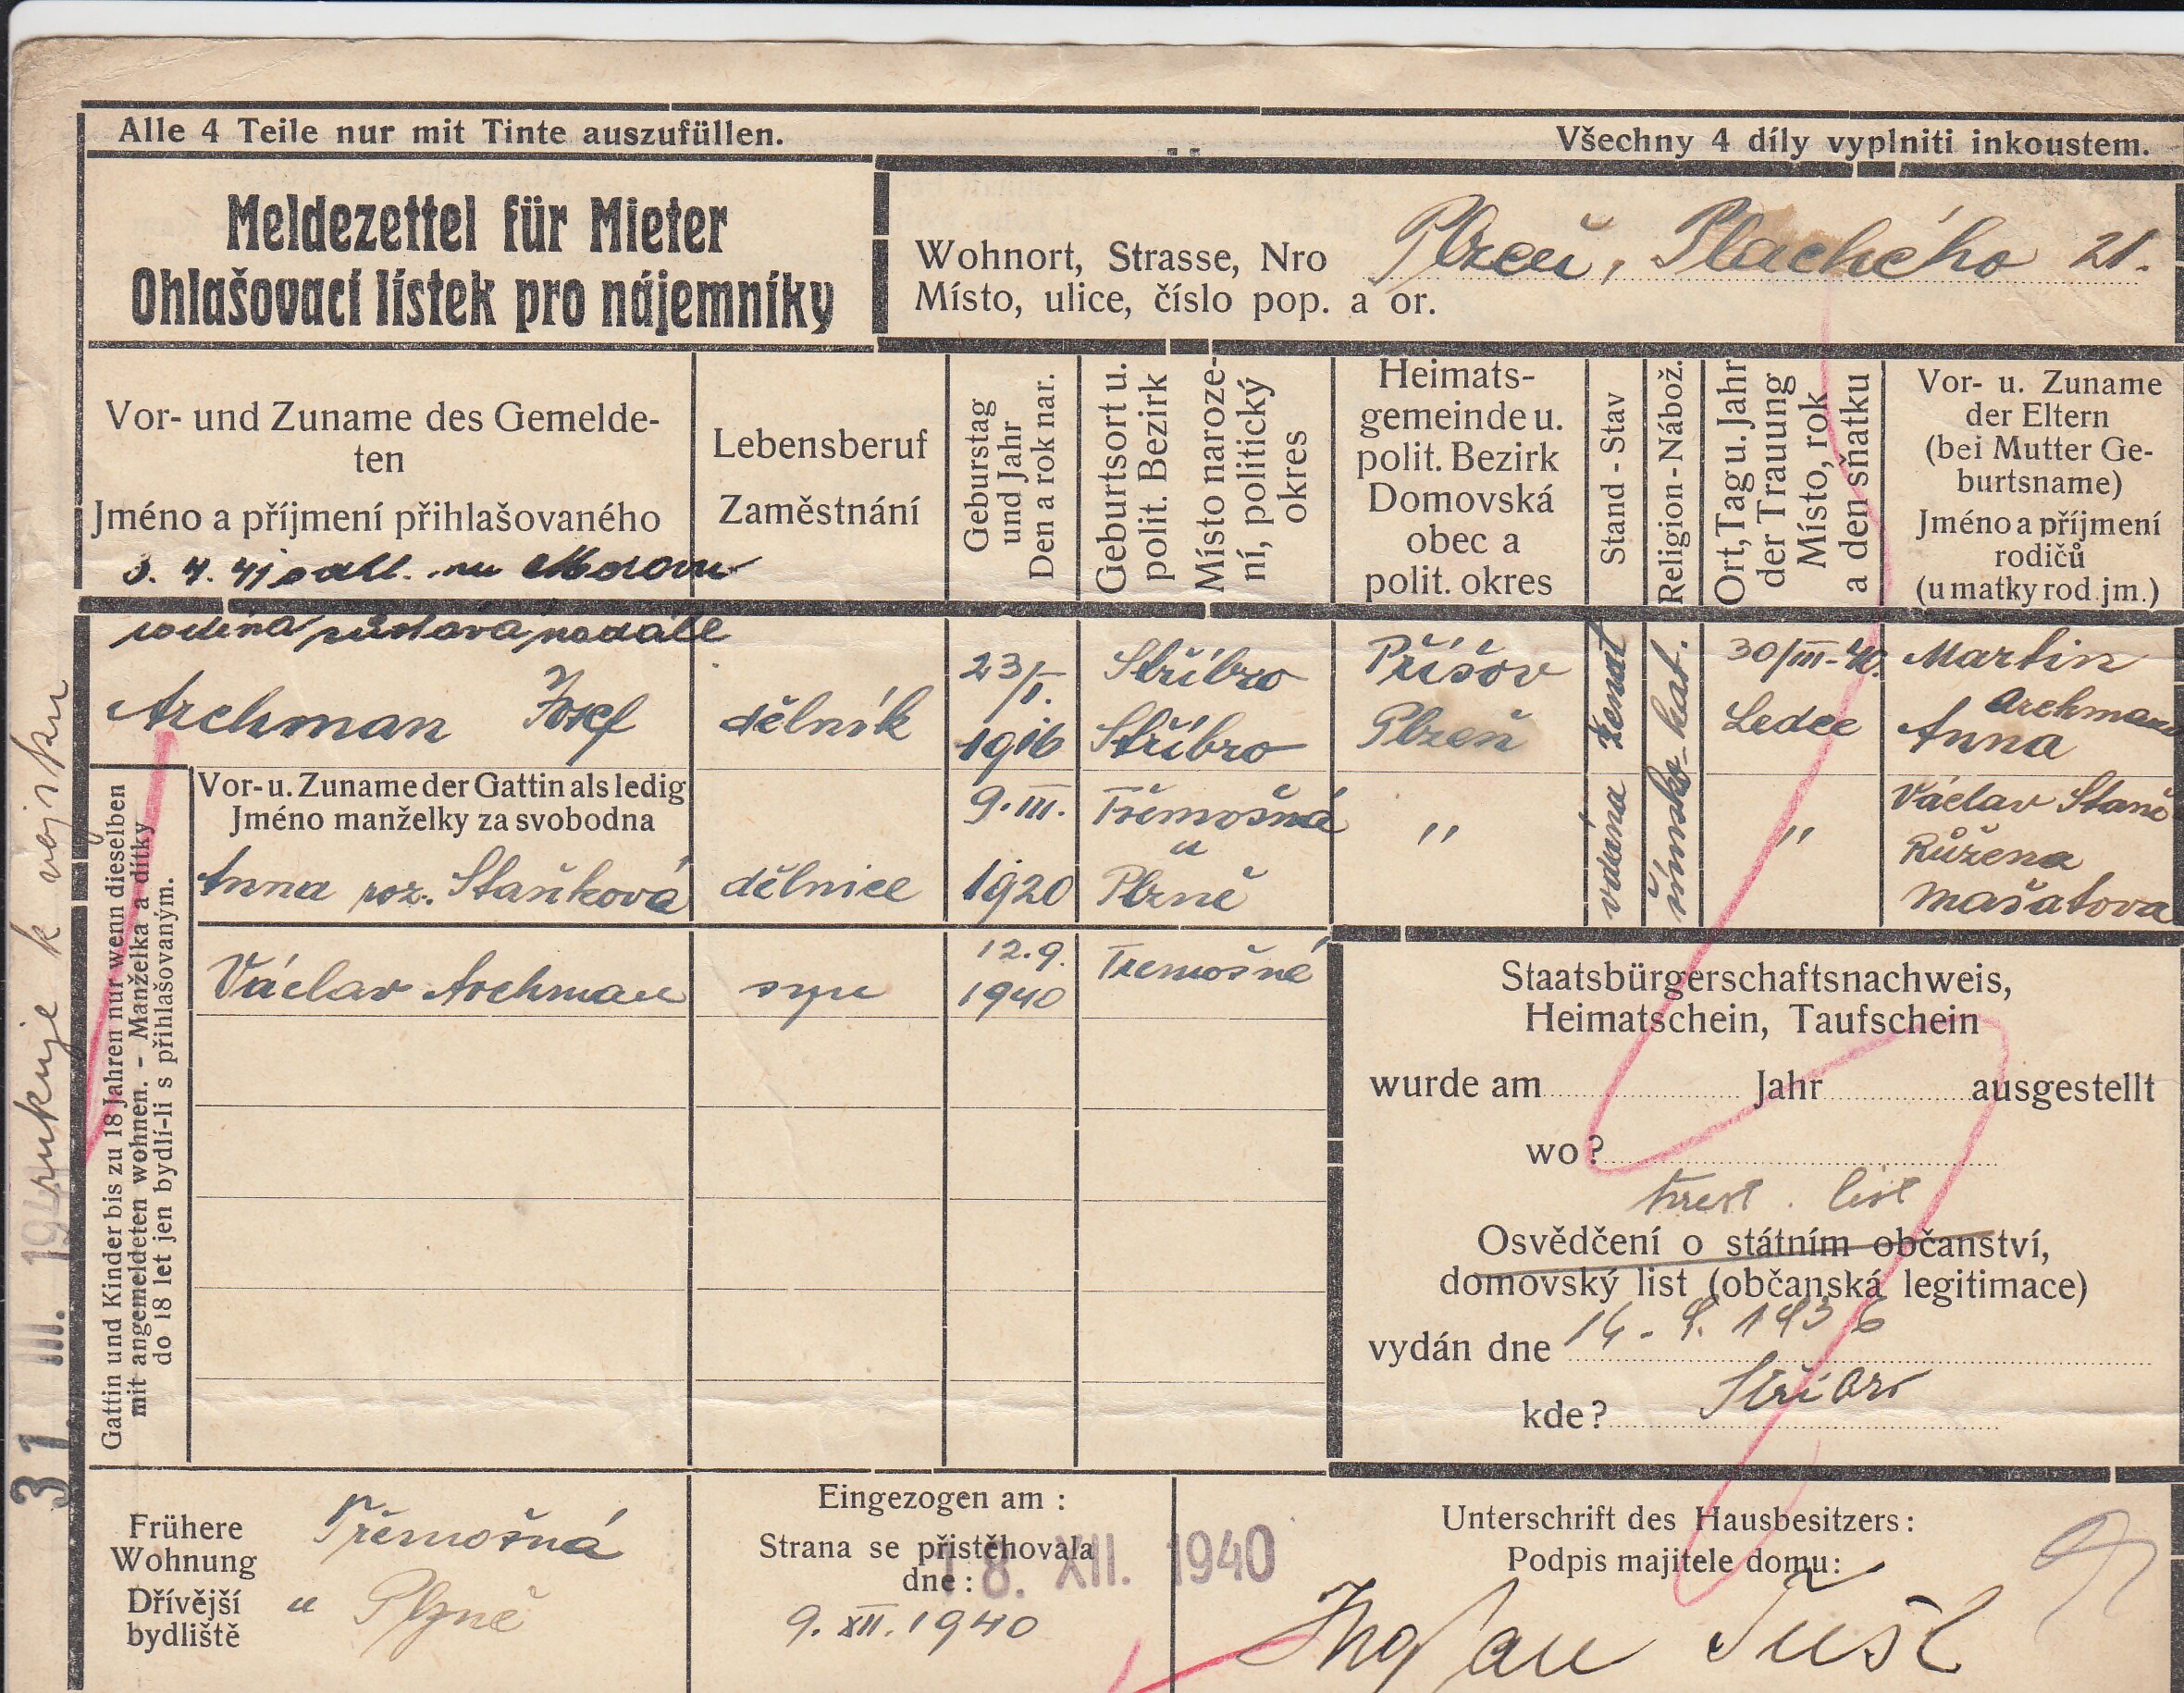 Alle 4 Teile nur mit Tinte auszufüllen.
Všechny 4 díly vyplniti inkoustem.
Meldezettel für Mieter
Ohlašovací lístek pro nájemníky
Wohnort, Strasse, Nro Plzeň, Plachého 21.
Místo, ulice, číslo pop. a or.
Vor- und Zuname des Gemelde-
ten
Jméno a příjmení přihlašovaného
3. 4. 41 odhl. na Moravu
rodina zůstává nadále
Lebensberuf
Zaměstnání
Geburstag
und Jahr
Den a rok nar.
Geburtsort u.
polit. Bezirk
Místo naroze-
ní, politický
okres
Heimats-
gemeinde u.
polit. Bezirk
Domovská
obec a
polit. okres
Stand - Stav
Religion - Nábož.
Ort, Tag u. Jahr
der Trauung
Místo, rok
a den sňatku
Vor- u. Zuname
der Eltern
(bei Mutter Ge-
burtsname)
Jméno a příjmení
rodičů
(u matky rod. jm.)
Archman Josef
dělník
23/I.
1916
Stříbro
Stříbro
Příšov
Plzeň
ženat
římsko-kat.
30/III-40.
Ledce
Martin
Archman
Anna
Vor- u. Zuname der Gattin als ledig
Jméno manželky za svobodna
Anna roz. Staňková
dělnice
9. III.
1920
Třemošná
u
Plzně
"
vdána
"
Václav Staně
Růžena
Mašatova
Václav Archman
syn
12. 9.
1940
Třemošné
Gattin und Kinder bis zu 18 Jahren nur wenn dieselben
mit angemeldeten wohnen. - Manželka a dítky
do 18 let jen bydlí-li s přihlašovaným.
31. III. 194
rukuje k vojsku
Staatsbürgerschaftsnachweis,
Heimatschein, Taufschein
wurde am Jahr ausgestellt
wo?
list
Osvědčení o státním občanství,
domovský list (občanská legitimace)
vydán dne 14. 9. 1936
kde? Stříbro
Frühere
Wohnung
Dřívější
bydliště
Třemošná
u Plzně
Eingezogen am :
Strana se přistěhovala
dne :
18. XII. 1940
9. XII. 1940
Unterschrift des Hausbesitzers :
Podpis majitele domu: